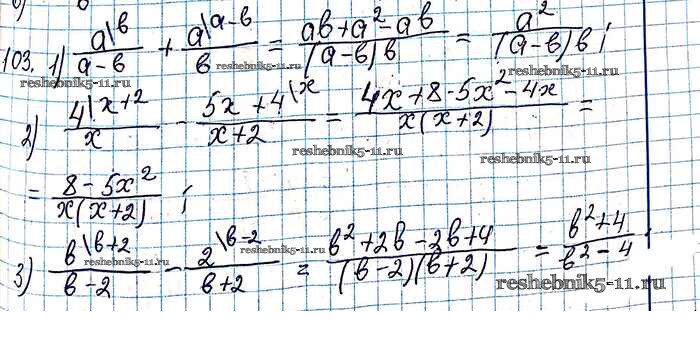 103. 1) a\b/(a-b) + a\a-b/b = (ab+a²-ab)/((a-b)b) = a²/((a-b)b);
reshebnik5-11.ru reshebnik5-11.ru reshebnik5-11.ru
2) 4\x+2/x - (5x+4\x)/(x+2) = (4x+8-5x²-4x)/(x(x+2)) =
reshebnik5-11.ru reshebnik5-11.ru
= (8-5x²)/(x(x+2));
3) b\b+2/(b-2) - 2\b-2/(b+2) = (b²+2b-2b+4)/((b-2)(b+2)) = (b²+4)/(b²-4).
reshebnik5-11.ru reshebnik5-11.ru
reshebnik5-11.ru reshebnik5-11.ru